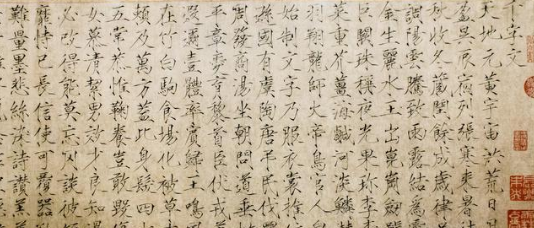 千字文
天地元黃宇宙洪荒日月
盈昃辰宿列張寒暑來
秋收冬藏閏餘成歲律呂
調陽雲騰致雨露結為霜
金生麗水玉出崑崗劍號
巨闕珠稱夜光果珍李柰
菜重芥薑海鹹河淡鱗
羽翔龍師火帝鳥官人皇
始制文字乃服衣裳推位
遜國有虞陶唐弔民伐罪
周發商湯坐朝問道垂拱
平章愛育黎首臣伏戎
遐邇壹體率賓歸王鳴鳳
在竹白駒食場化被草木
賴及萬方蓋此身髮四大
五常恭惟鞠養豈敢毀傷
女慕貞潔男效才良知過
必改得能莫忘罔談彼短
靡恃己長信使可覆器欲
難量墨悲絲染詩讚羔羊